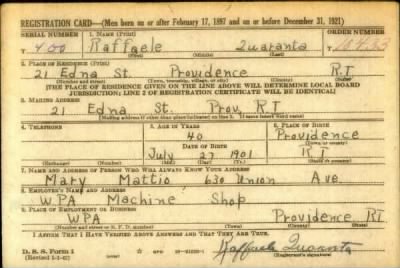 REGISTRATION CARD—(Men born on or after February 17, 1897 and on or before December 31, 1921)
SERIAL NUMBER 1. NAME (Print) ORDER NUMBER
T 400 Raffaele Quaranta
(First) (Middle) (Last)
2. PLACE OF RESIDENCE (Print)
21 Edna St. Providence R I
(Number and street) (Town, township, village, or city) (County) (State)
[THE PLACE OF RESIDENCE GIVEN ON THE LINE ABOVE WILL DETERMINE LOCAL BOARD
JURISDICTION; LINE 2 OF REGISTRATION CERTIFICATE WILL BE IDENTICAL]
3. MAILING ADDRESS
21 Edna St. Prov. R I
[Mailing address if other than place indicated on line 2. If same insert word same]
4. TELEPHONE 5. AGE IN YEARS 6. PLACE OF BIRTH
40 Providence
DATE OF BIRTH (Town or county)
July 27 1901 R I
(Exchange) (Number) (Mo.) (Day) (Yr.) (State or country)
7. NAME AND ADDRESS OF PERSON WHO WILL ALWAYS KNOW YOUR ADDRESS
Mary Mattio 630 Union Ave
8. EMPLOYER'S NAME AND ADDRESS
WPA Machine Shop
9. PLACE OF EMPLOYMENT OR BUSINESS
WPA Providence RI
(Number and street or R. F. D. number) (Town) (County) (State)
I AFFIRM THAT I HAVE VERIFIED ABOVE ANSWERS AND THAT THEY ARE TRUE.
D. S. S. Form 1
(Revised 1-1-42) (over) Raffaele Quaranta
(Registrant's signature)